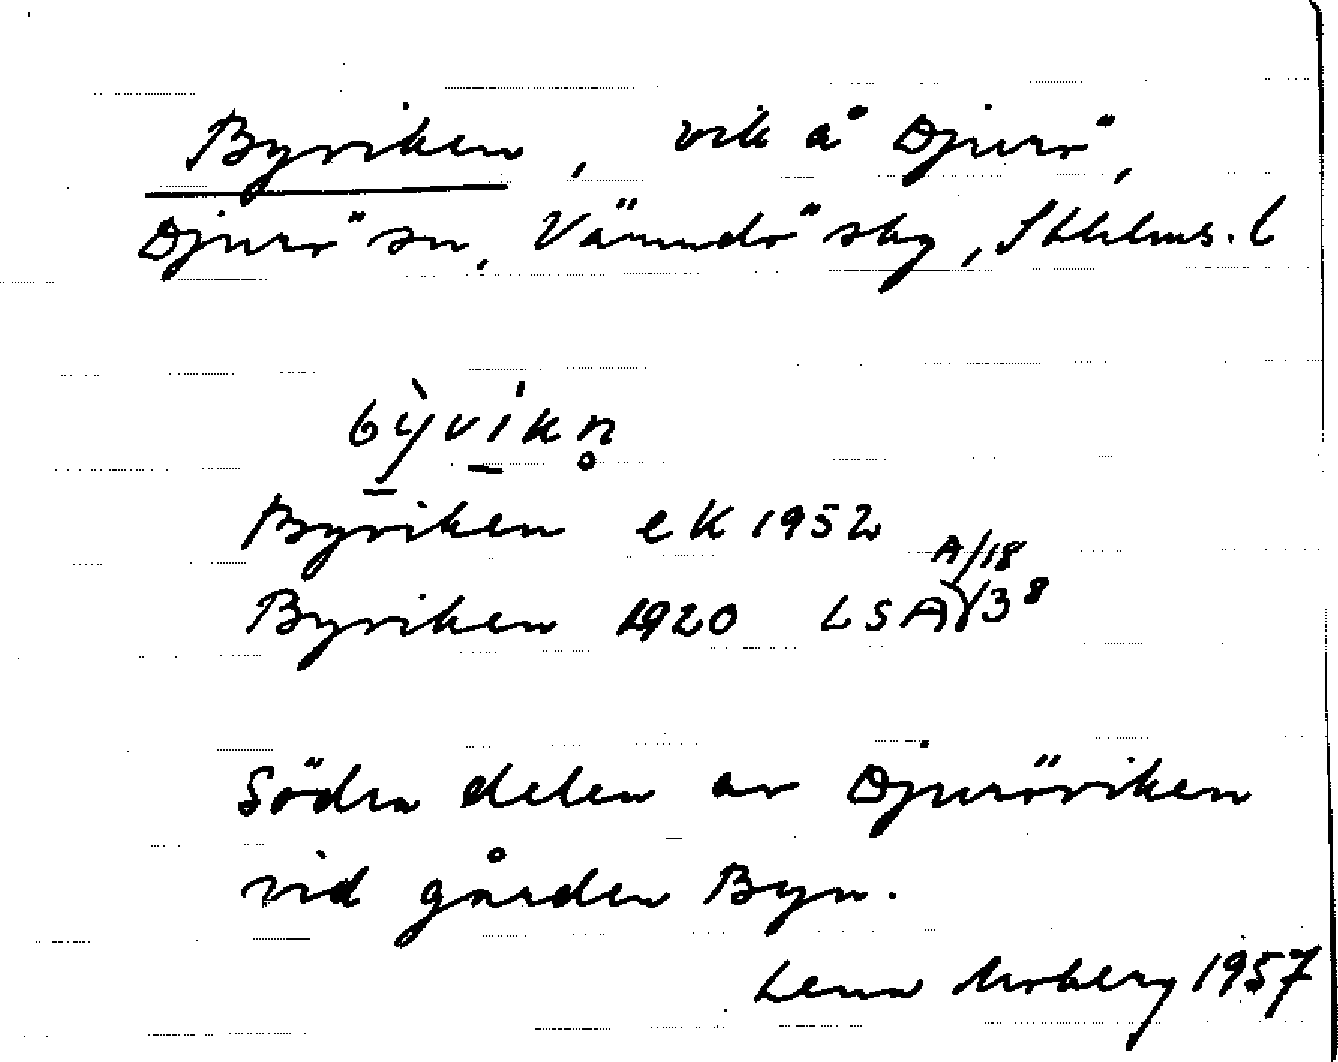 Byviken, vik å Djurö,
Djurö sn, Värmdö skg, Sthlms. l
bỳvíkn̥
Byviken ek 1952
Byviken 1920 LSA A/18 /3 8
Södra delen av Djuröviken
vid gården Byn.
Lena Moberg 1957